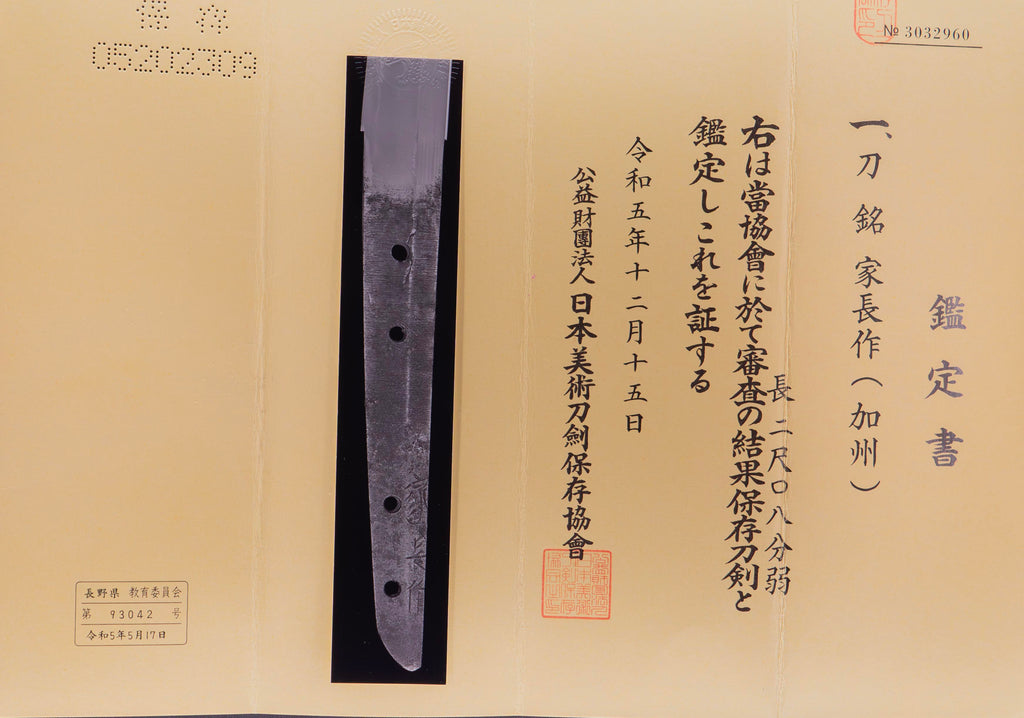 № 3032960
鑑定書
一、刀 銘 家長作(加州)
長 二尺〇八分弱
右は當協會に於て審査の結果保存刀剣と
鑑定しこれを証する
令和五年十二月十五日
公益財團法人 日本美術刀劍保存協會
保存
05202309
長野県 教育委員会
第 93042 号
令和5年5月17日